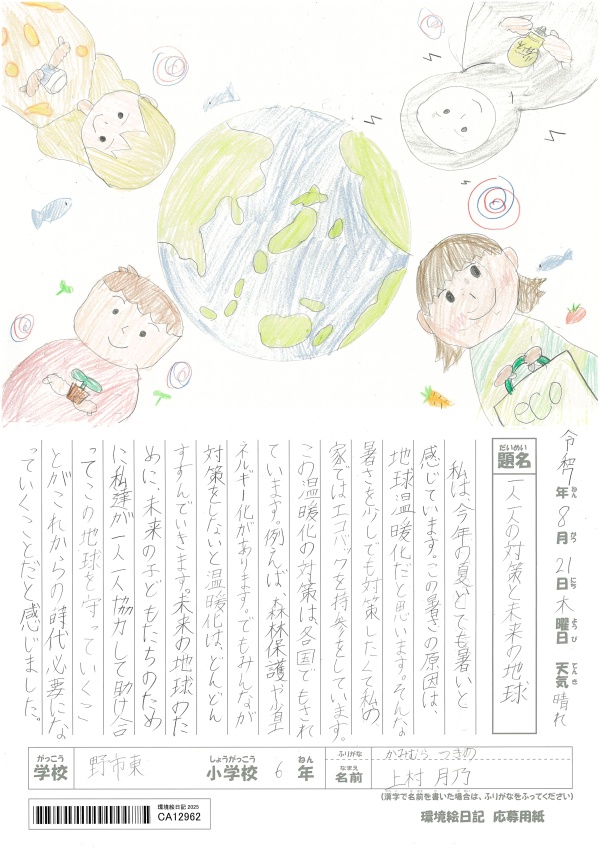 eco
令和7年8月21日木曜日 天気 晴れ
ねん がつ にち ようび てんき
だいめい
題名 一人一人の対策と未来の地球
私は、今年の夏、とても暑いと
感じています。この暑さの原因は、
地球温暖化だと思います。そんな
暑さを少しでも対策したくて私の
家ではエコバックを持参をしています。
この温暖化の対策は、各国でもされ
ています。例えば、森林保護や省エ
ネルギー化があります。でもみんなが
対策をしないと温暖化は、どんどん
すすんでいきます。未来の地球のた
めに、未来の子どもたちのため
に私達が一人一人協力して助け合
ってこの地球を守っていくこ
とがこれからの時代必要にな
っていくことだと感じました。
がっこう しょうがっこう ねん
学校 野市東 小学校 6年
ふりがな かみむら つきの
なまえ
名前 上村 月乃
(漢字で名前を書いた場合は、ふりがなをふってください)
環境絵日記 2025
CA12962
環境絵日記 応募用紙